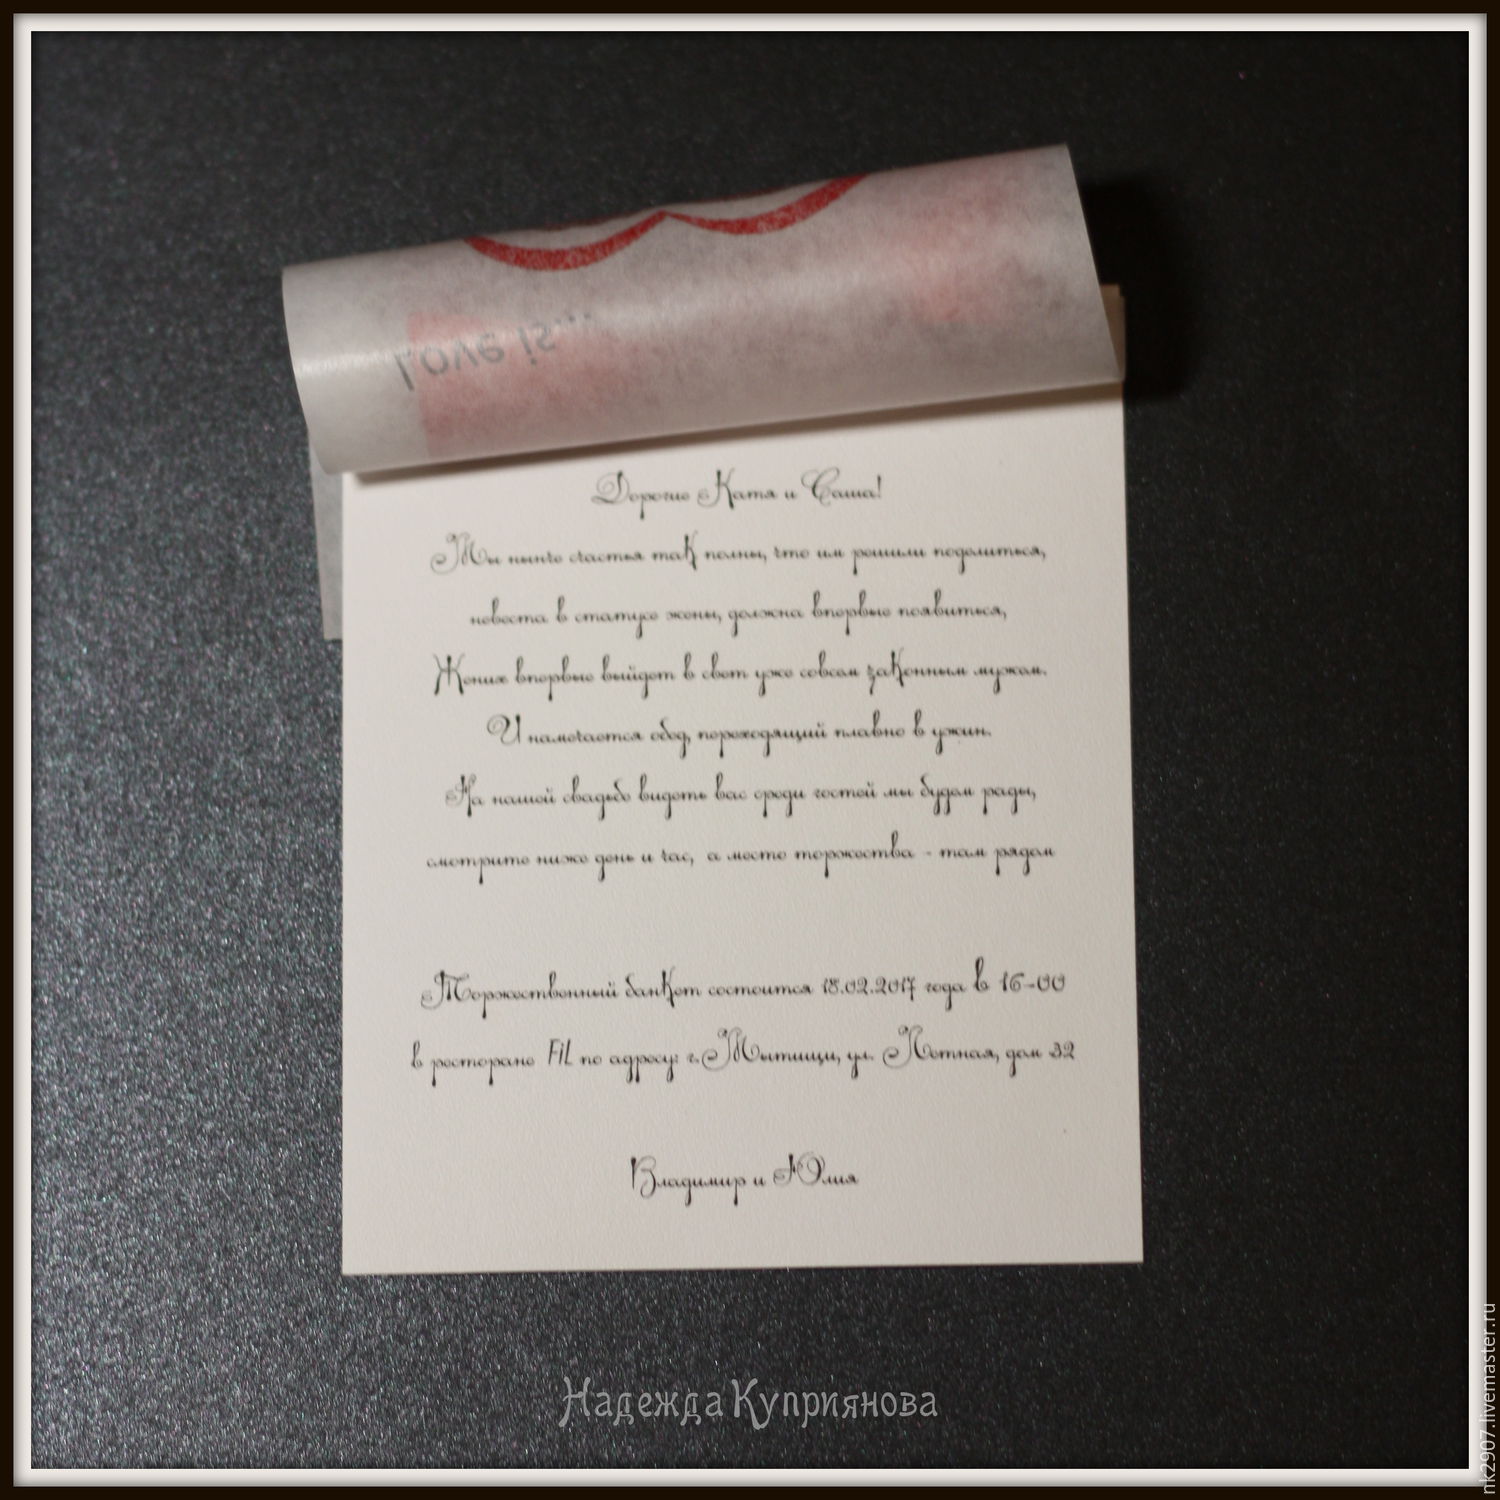 Love is...
Дорогие Катя и Саша!
Мы нынче счастья так полны, что им решили поделиться,
невеста в статусе жены, должна впервые появиться,
Жених впервые выйдет в свет уже совсем законным мужем.
И намечается обед, переходящий плавно в ужин.
На нашей свадьбе видеть вас среди гостей мы будем рады,
смотрите ниже день и час, а место торжества - там рядом
Торжественный банкет состоится 18.02.2017 года в 16-00
в ресторане FiL по адресу: г. Мытищи, ул. Летная, дом 32
Владимир и Юлия
Надежда Куприянова
nk2907.livemaster.ru